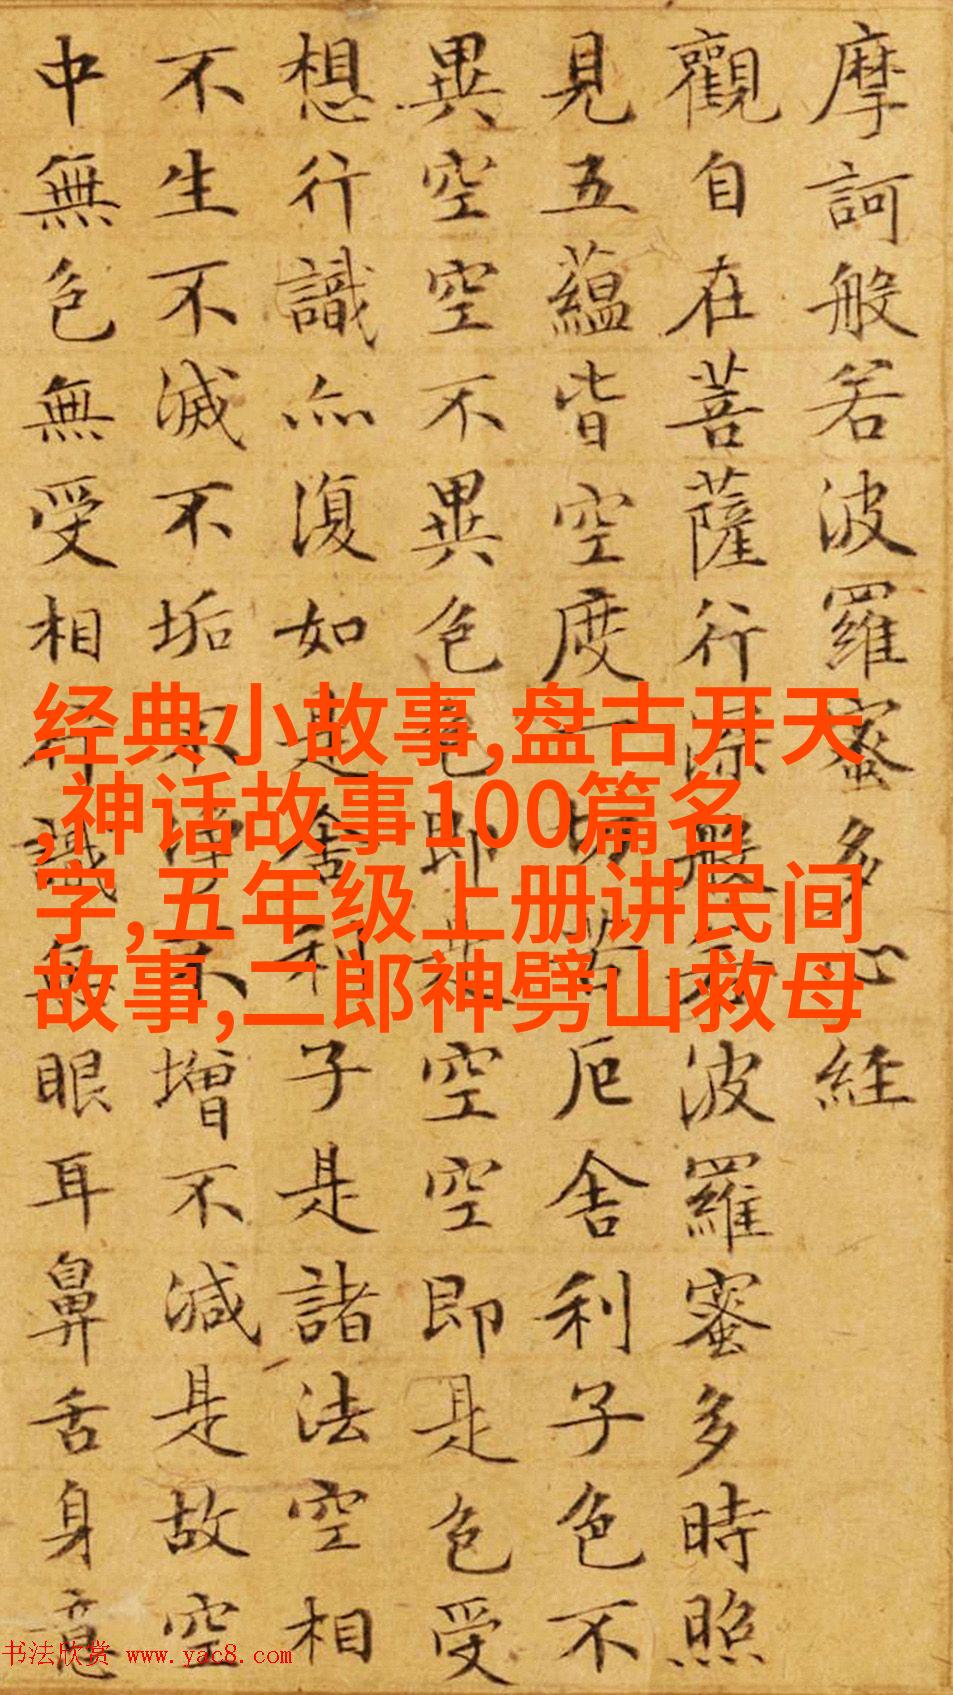 摩訶般若波羅蜜多心経
觀自在菩薩行深般若波羅蜜多時照
見五蘊皆空度一切苦厄舍利子色不
異空空不異色色即是空空即是色受
想行識亦復如是舍利子是諸法空相
不生不滅不垢不淨不增不減是故空
中無色無受相行識無眼耳鼻舌身意
经典小故事,盘古开天
,神话故事100篇名
字,五年级上册讲民间
故事,二郎神劈山救母
书法欣赏 www.yac8.com